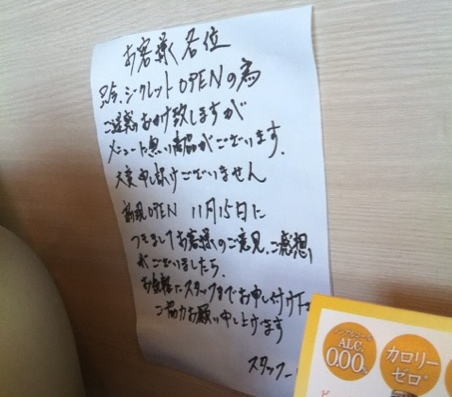 お客様各位
只今、シークレットOPENの為
ご迷惑おかけ致しますが
メニューに無い商品がございます。
大変申し訳けございません
新規OPEN 11月15日に
つきましてお客様のご意見、ご感想
がございましたら、
お気軽にスタッフまでお申し付け下
ご協力お願い申し上げます
スタッフ一
ノンアルコール
ALC.
0.00%
カロリー
ゼロ*